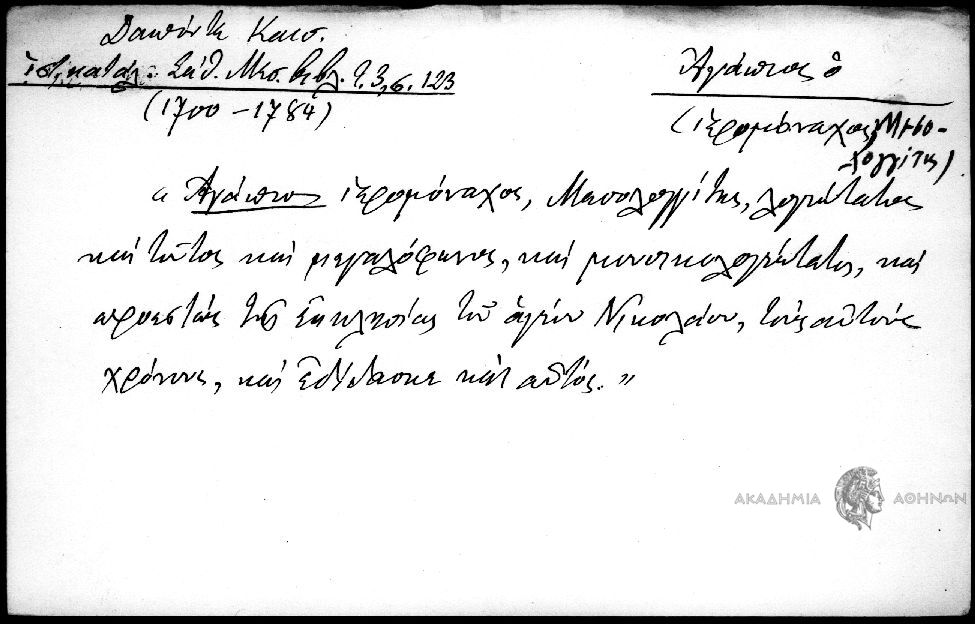 Δαπόντε Καισ.
ἱστ. κατάλ. Σάθ. Μεσ. βιβλ. τ. 3, σ. 123
(1700-1784)
Ἀγάπιος ὁ
(ἱερομόναχος, Μεσο-
λογγίτης)
« Ἀγάπιος ἱερομόναχος, Μεσολογγίτης, λογιώτατος
καὶ τοῦτος καὶ μεγαλόφωνος, καὶ μουσικολογιώτατος, καὶ
προεστὼς τῆς Ἐκκλησίας τοῦ ἁγίου Νικολάου, τοὺς αὐτοὺς
χρόνους, καὶ ἐδίδασκε καὶ αὐτός. »
ΑΚΑΔΗΜΙΑ ΑΘΗΝΩΝ